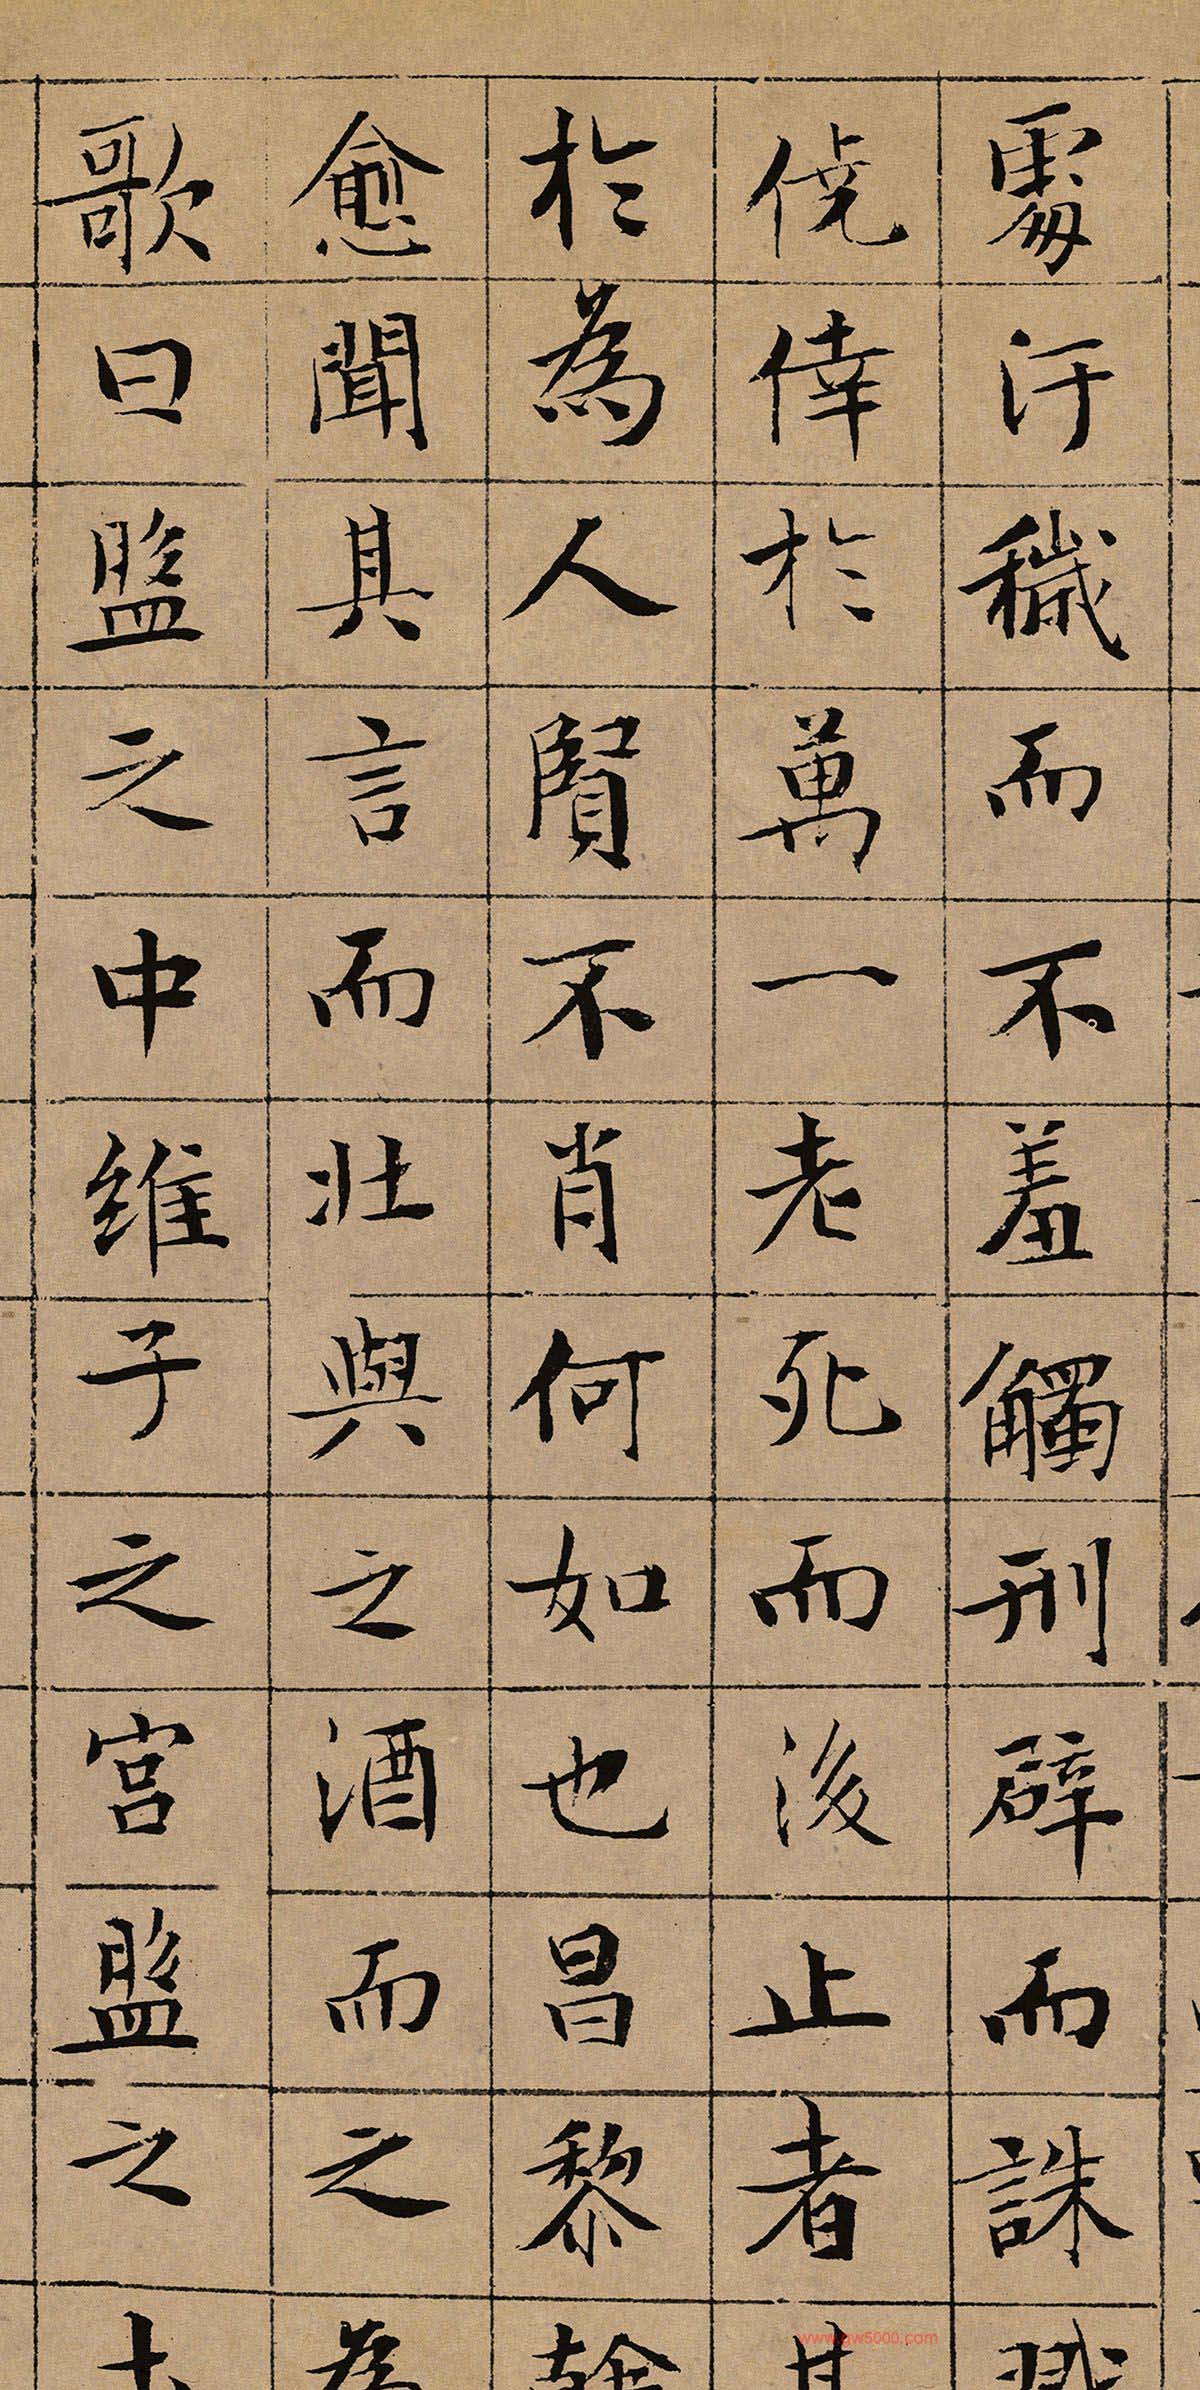 處汙穢而不羞觸刑辟而誅戮
僥倖於萬一老死而後止者其
於為人賢不肖何如也昌黎韓
愈聞其言而壯與之酒而之為
歌曰盤之中維子之宮盤之土
www.gw5000.com